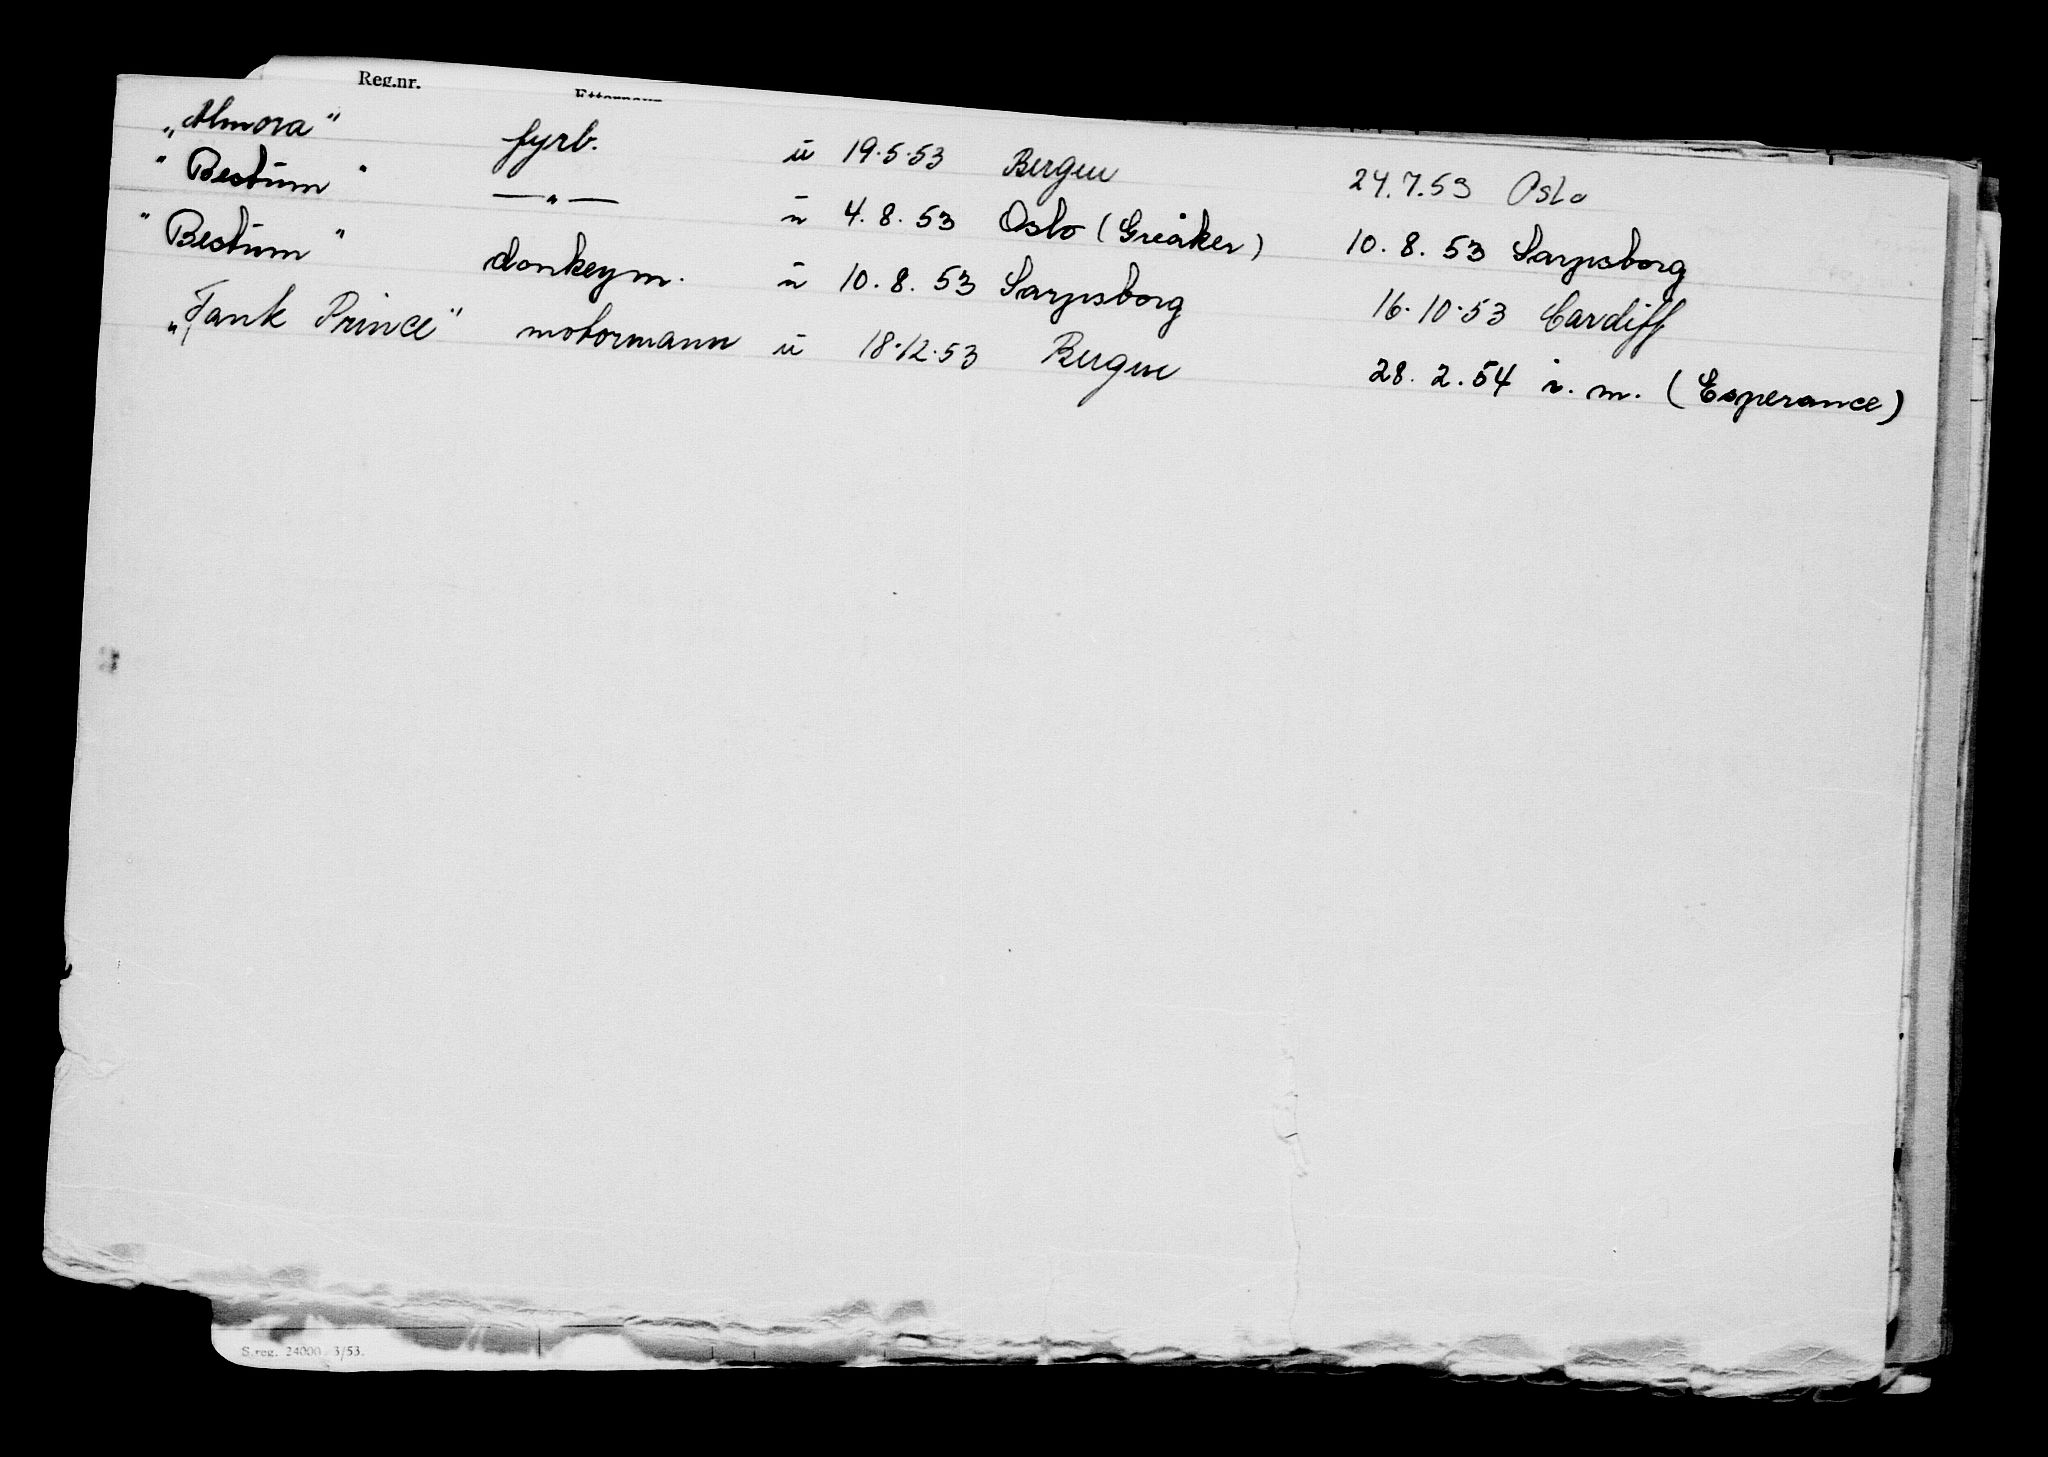 Reg.nr. Etternavn
„Almora" fyrb. u 19.5.53 Bergen 24.7.53 Oslo
"Bestum" —"— u 4.8.53 Oslo (Greåker) 10.8.53 Sarpsborg
"Bestum" donkeym. u 10.8.53 Sarpsborg 16.10.53 Cardiff
„Tank Prince" motormann u 18.12.53 Bergen 28.2.54 i.m. (Esperance)
S.reg. 24000 3/53.